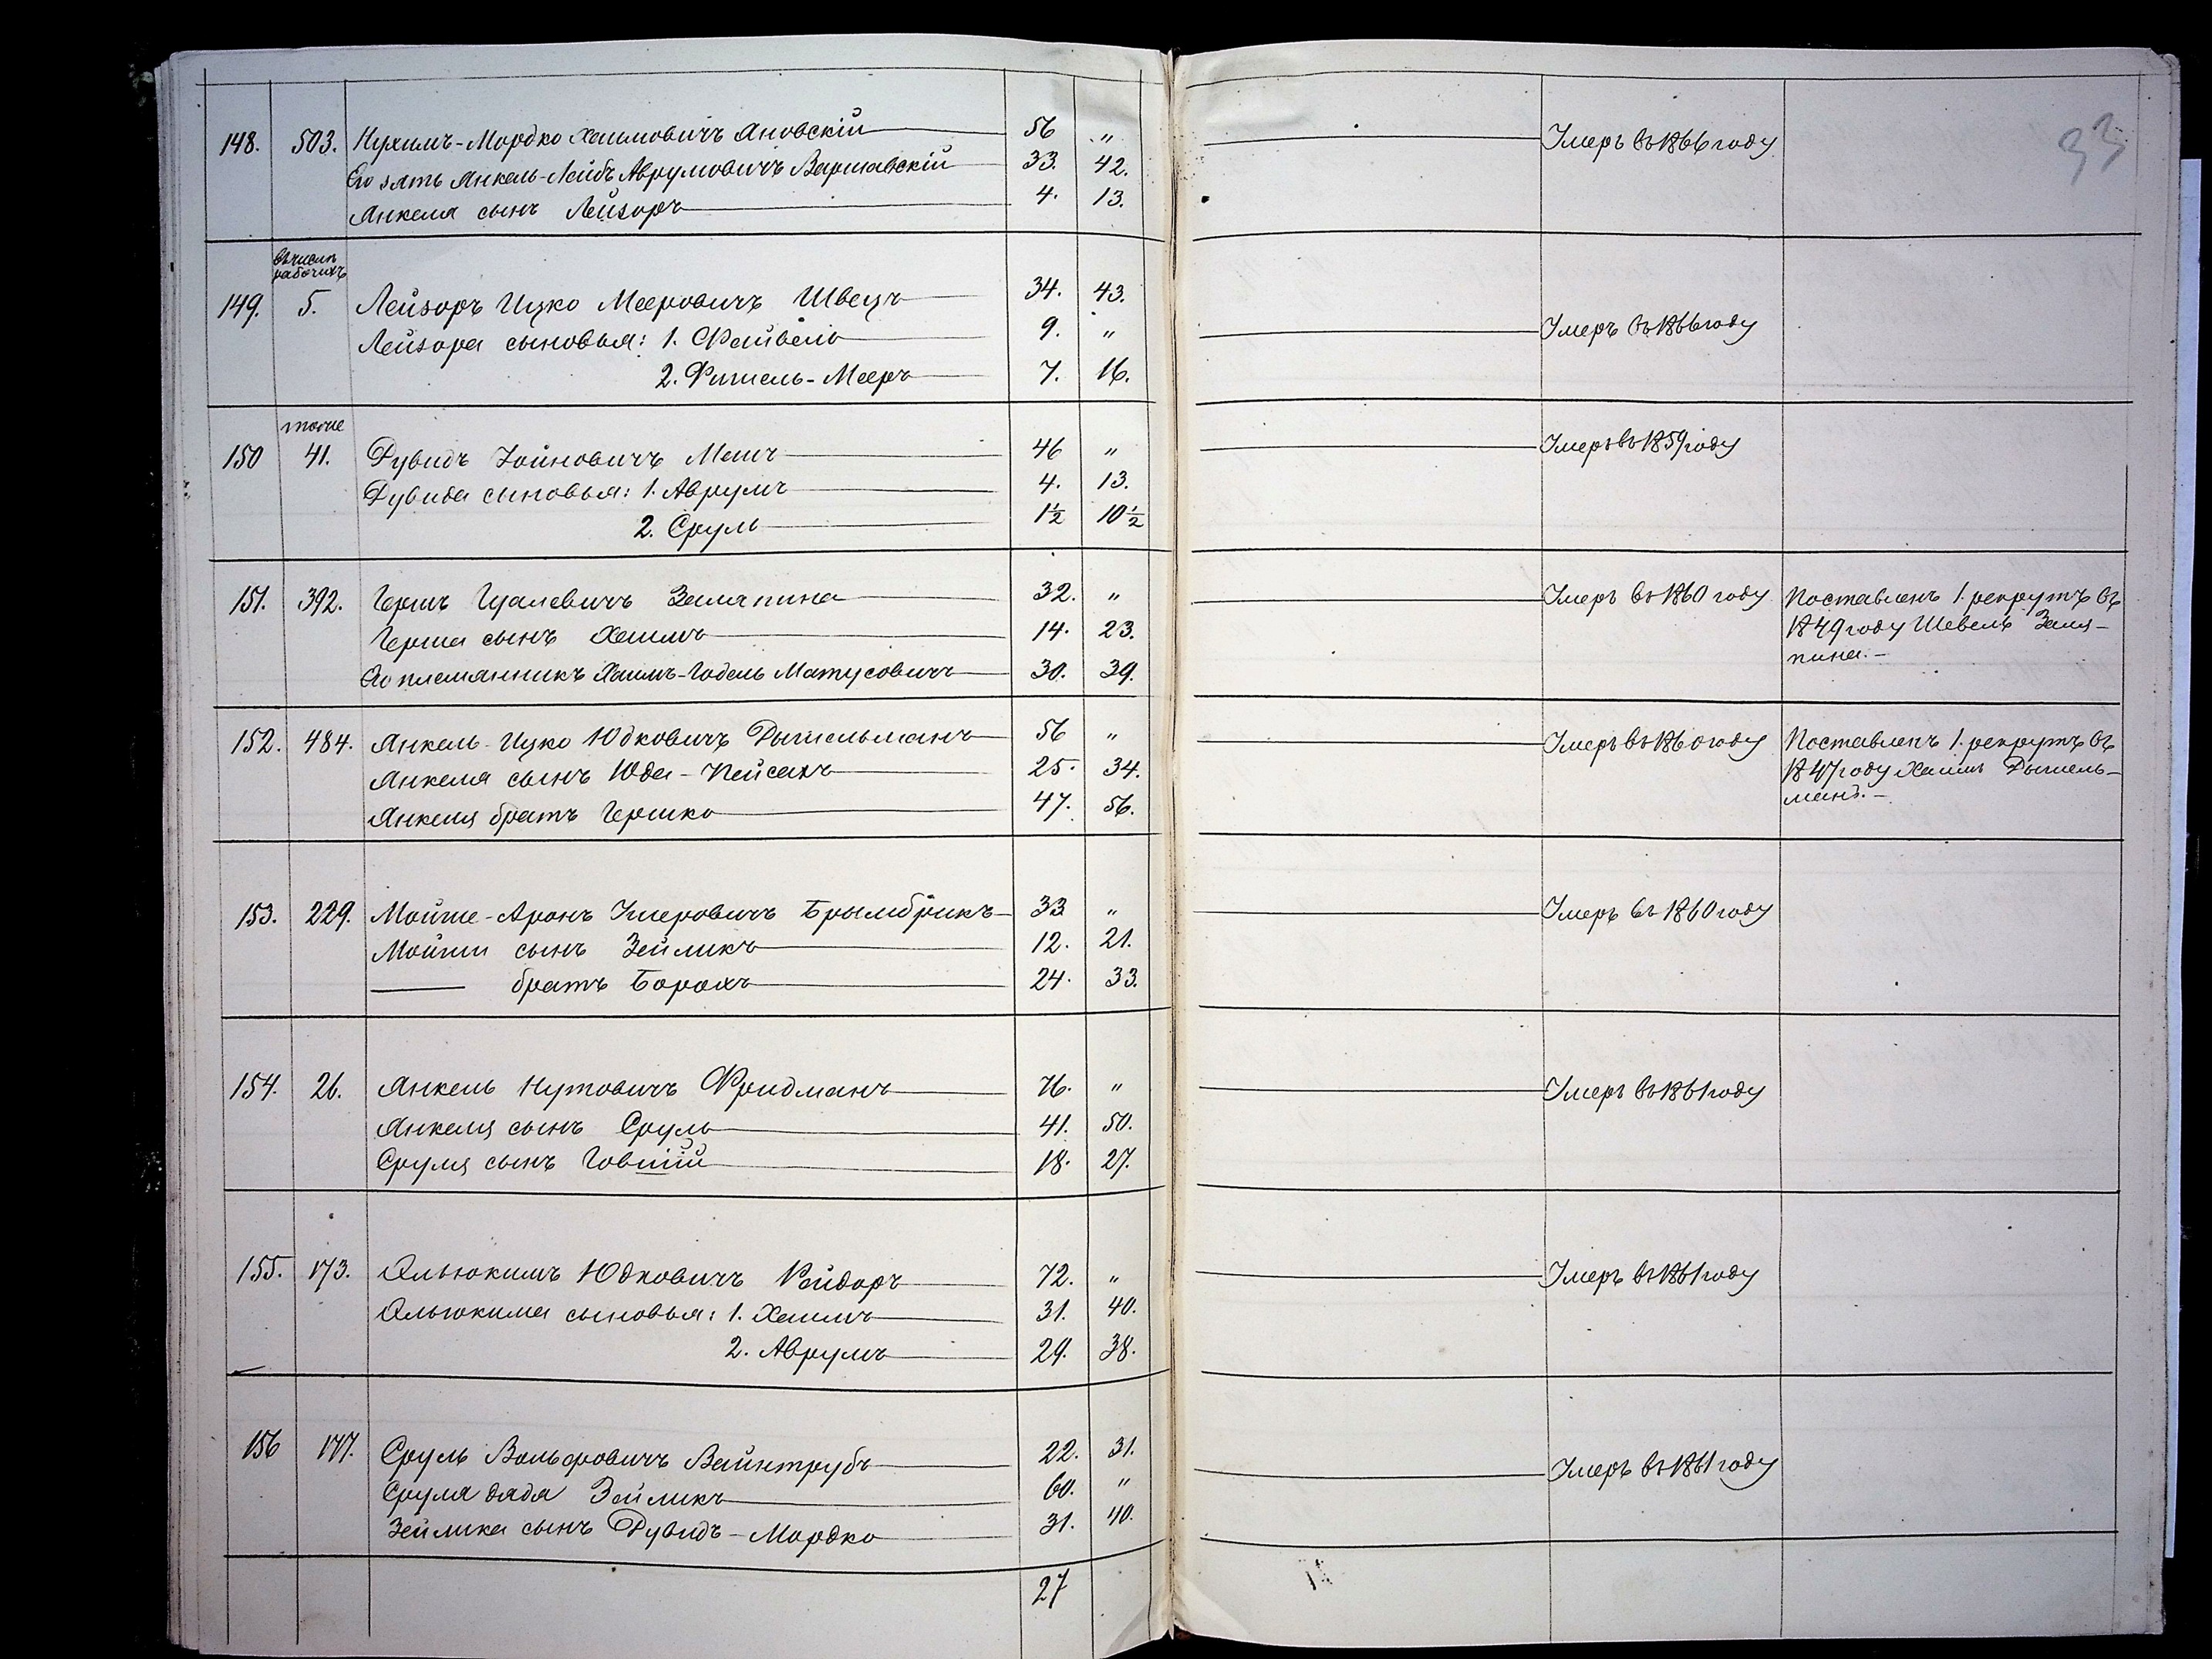 33
148. 503. Нухимъ-Мордко Хаимовичъ Яновскій 56 „ Умеръ въ 1866 году
Его зять Янкель-Лейбъ Аврумовичъ Варшавскій 33. 42.
Янкеля сынъ Лейзоръ 4. 13.
въ числѣ
рабочихъ
149. 5. Лейзоръ Ицко Мееровичъ Швецъ 34. 43.
Лейзора сыновья: 1. Файвель 9. „ Умеръ въ 1866 году
2. Фишель-Мееръ 7. 16.
тоже
150 41. Дувидъ Іойновичъ Мешъ 46 „ Умеръ въ 1859 году
Дувида сыновья: 1. Аврумъ 4. 13.
2. Сруль 1½ 10½
151. 392. Гершъ Цалевичъ Заляпина 32. „ Умеръ въ 1860 году Поставленъ 1. рекрутъ въ
Герша сынъ Хаимъ 14. 23. 1849 году Шевель Заля-
Его племянникъ Хаимъ-Годель Матусовичъ 30. 39. пина.-
152. 484. Янкель-Ицко Юдковичъ Дышельманъ 56 „ Умеръ въ 1860 году Поставленъ 1. рекрутъ въ
Янкеля сынъ Юда-Пейсахъ 25. 34. 1847 году Хаимъ Дышель-
Янкеля братъ Гершко 47. 56. манъ.-
153. 229. Мойше-Аронъ Умеровичъ Брымбрикъ 33 „ Умеръ въ 1860 году
Мойши сынъ Зейликъ 12. 21.
— братъ Борохъ 24. 33.
154. 26. Янкель Нутовичъ Фридманъ 76. „ Умеръ въ 1861 году
Янкеля сынъ Сруль 41. 50.
Сруля сынъ Говшій 18. 27.
155. 173. Ольюкимъ Юдковичъ Райдоръ 72. „ Умеръ въ 1861 году
Ольюкима сыновья: 1. Хаимъ 31. 40.
2. Аврумъ 29. 38.
156 177. Сруль Вольфовичъ Вайнтрубъ 22. 31.
Сруля дядя Зейликъ 60. „ Умеръ въ 1861 году
Зейлика сынъ Дувидъ-Мордко 31. 40.
27